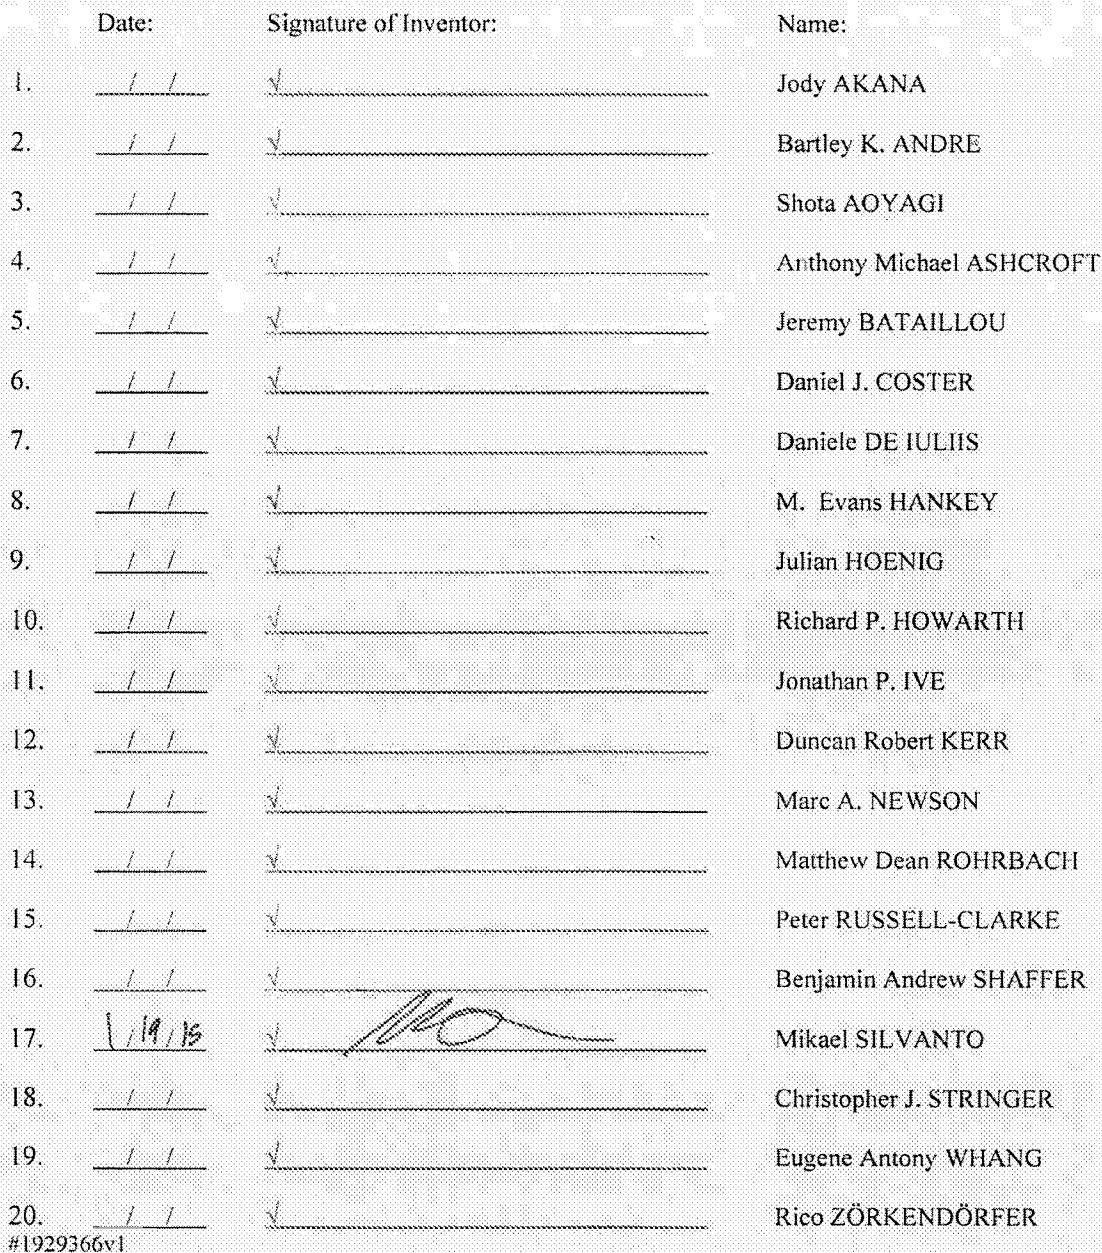 Date: Signature of Inventor: Name:
1. / / √ Jody AKANA
2. / / √ Bartley K. ANDRE
3. / / √ Shota AOYAGI
4. / / √ Anthony Michael ASHCROFT
5. / / √ Jeremy BATAILLOU
6. / / √ Daniel J. COSTER
7. / / √ Daniele DE IULIIS
8. / / √ M. Evans HANKEY
9. / / √ Julian HOENIG
10. / / √ Richard P. HOWARTH
11. / / √ Jonathan P. IVE
12. / / √ Duncan Robert KERR
13. / / √ Marc A. NEWSON
14. / / √ Matthew Dean ROHRBACH
15. / / √ Peter RUSSELL-CLARKE
16. / / √ Benjamin Andrew SHAFFER
17. 1/19/15 √ Mikael SILVANTO
18. / / √ Christopher J. STRINGER
19. / / √ Eugene Antony WHANG
20. / / √ Rico ZÖRKENDÖRFER
#1929366v1